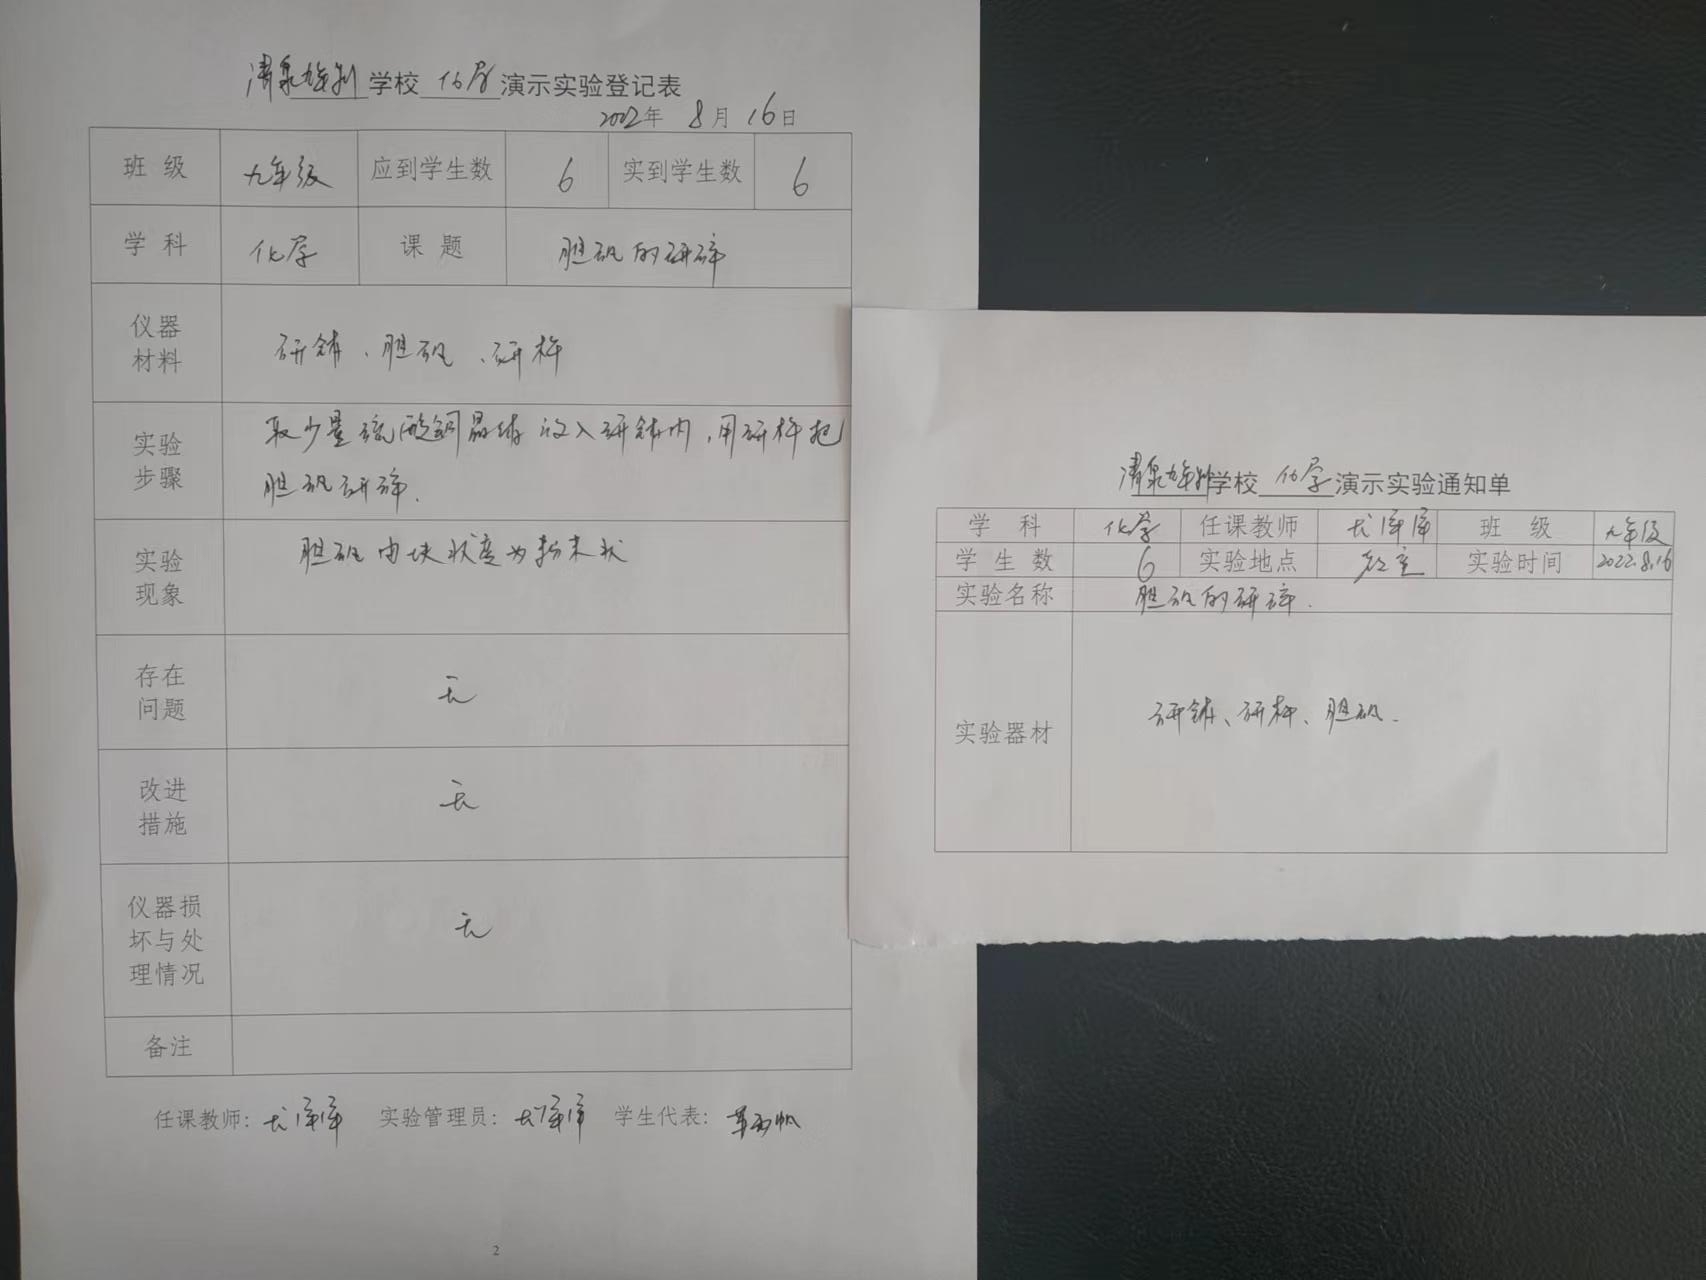 清泉九年制学校 化学 演示实验登记表
2022年 8月 16日
班级 九年级 应到学生数 6 实到学生数 6
学科 化学 课题 胆矾的研碎
仪器材料 研钵、胆矾、研杵
实验步骤 取少量硫酸铜晶体放入研钵内,用研杵把
胆矾研碎.
实验现象 胆矾由块状变为粉末状
存在问题 无
改进措施 无
仪器损坏与处理情况 无
备注
任课教师: 实验管理员: 学生代表:
2
清泉九年制学校 化学 演示实验通知单
学科 化学 任课教师 班级 九年级
学生数 6 实验地点 教室 实验时间 2022.8.16
实验名称 胆矾的研碎.
实验器材 研钵、研杵、胆矾.